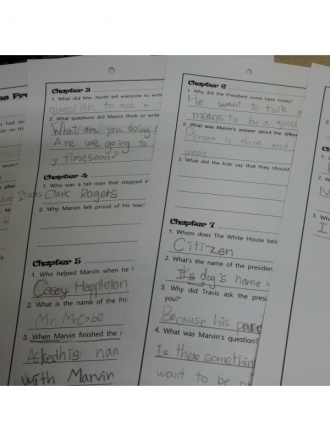 ss Pro
Chapter 3
1. What did Mrs. North tell everyone to write
question to ask a
2. What questions did Marvin think or write
What are you doing
Are we going to
y timesan?
Chapter 4
1. Who was a tall man that stepped
Clark Rogers
2. Why Marvin felt proud of his teac
Chapter 5
1. Who helped Marvin when he
Casey Happleton
2. What is the name of the Pri
Mr. McCabe
3. When Marvin finished the
Askedhis nan
with Marvin
Chapter 6
1. Why did the President come here today?
He want to talk
means to be a good
2. What was Marvin's answer about the differe
Person is alone and
3. What did the kids say that they should
Chapter 7
1. Whom does The White House belo
Citizen
2. What's the name of the preside
It's dog's name
3. Why did Travis ask the presi
you?
Because his
4. What was Marvin's question?
Is there somethin
want to be